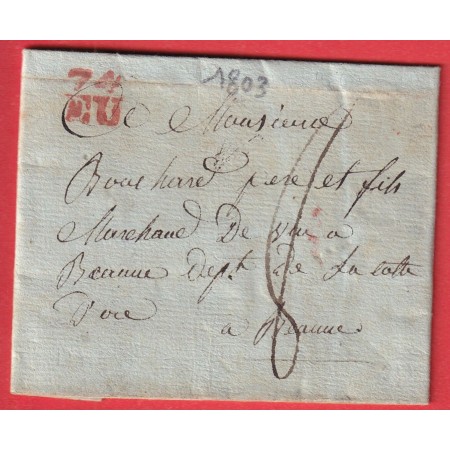 1803
74
EU
A Monsieur
Bouchard pere et fils
Marchand De vin a
Beaune dept. De La Cotte
D'ore
a Beaune
8